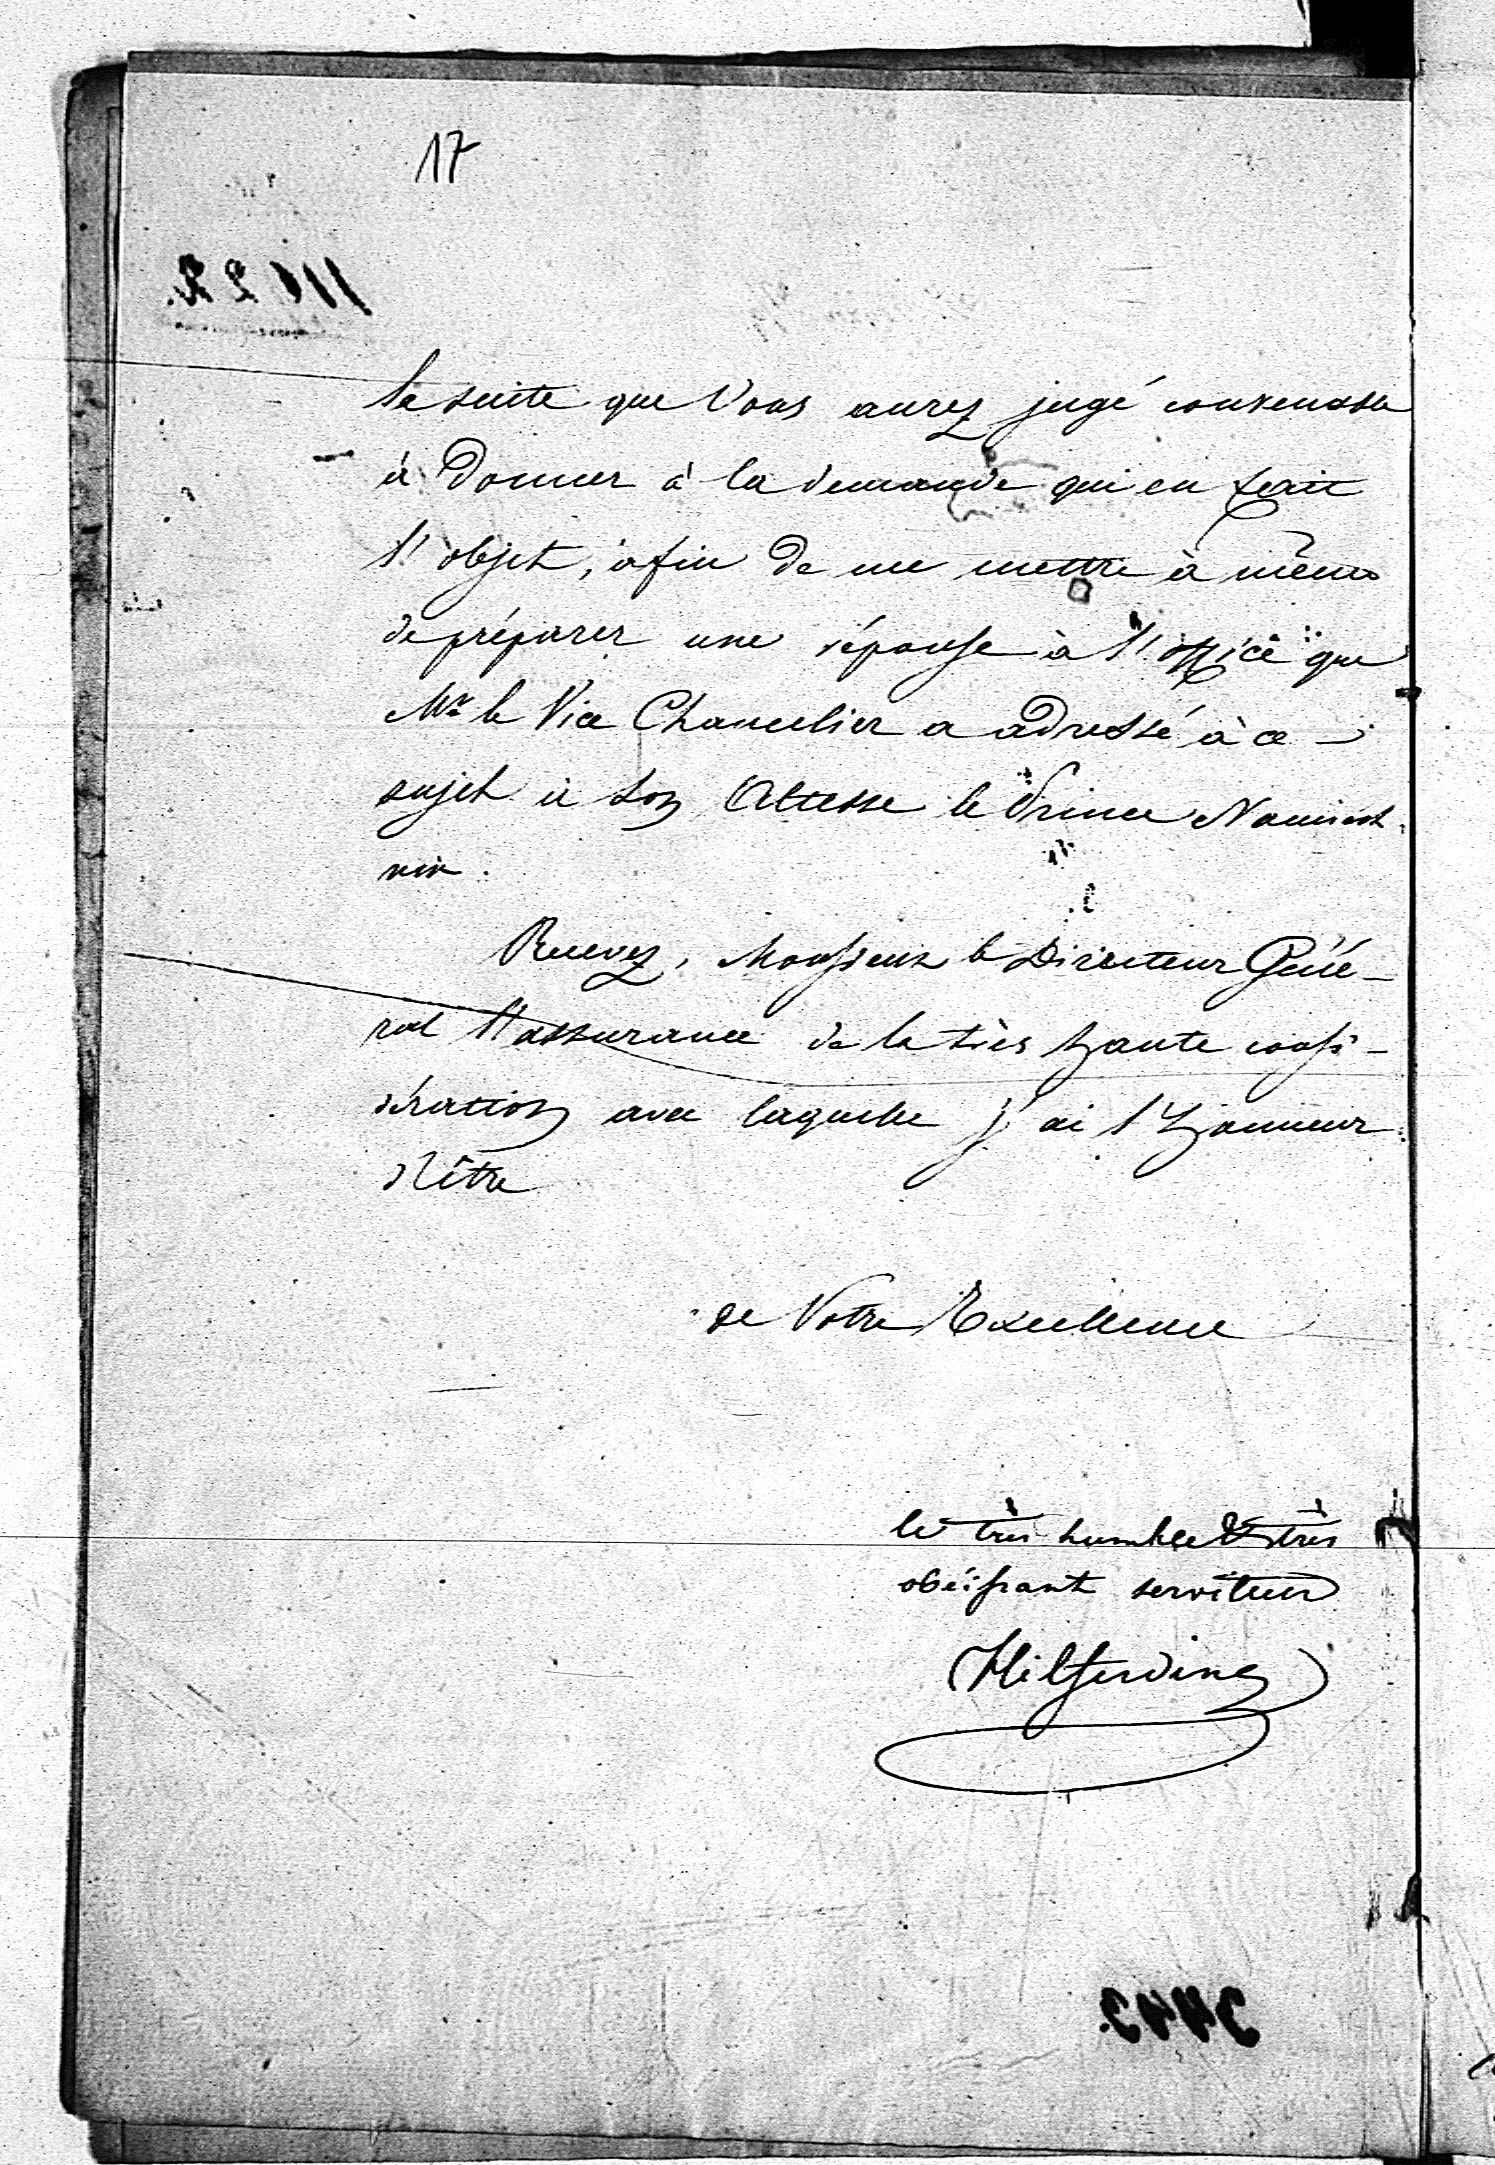 17
la suite que Vous aurez jugé convenable
à donner à la demande qui en fait
l'objet, afin de me mettre à même
de préparer une réponse à l'office que
Mr le Vice Chancelier a adressé à ce
sujet à Son Altesse le Prince Namiest-
nik.
Recevez, Monsieur le Directeur Géné-
ral l'assurance de la très haute consi-
dération avec laquelle j'ai l'honneur
d'être
de Votre Excellence
le très humble & très
obéissant serviteur
Hilferding